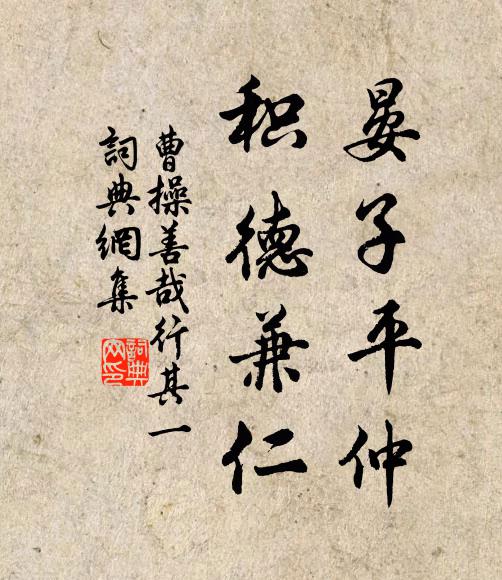 晏子平仲
积德兼仁
曹操善哉行其一
詞典網集
詞典
网印